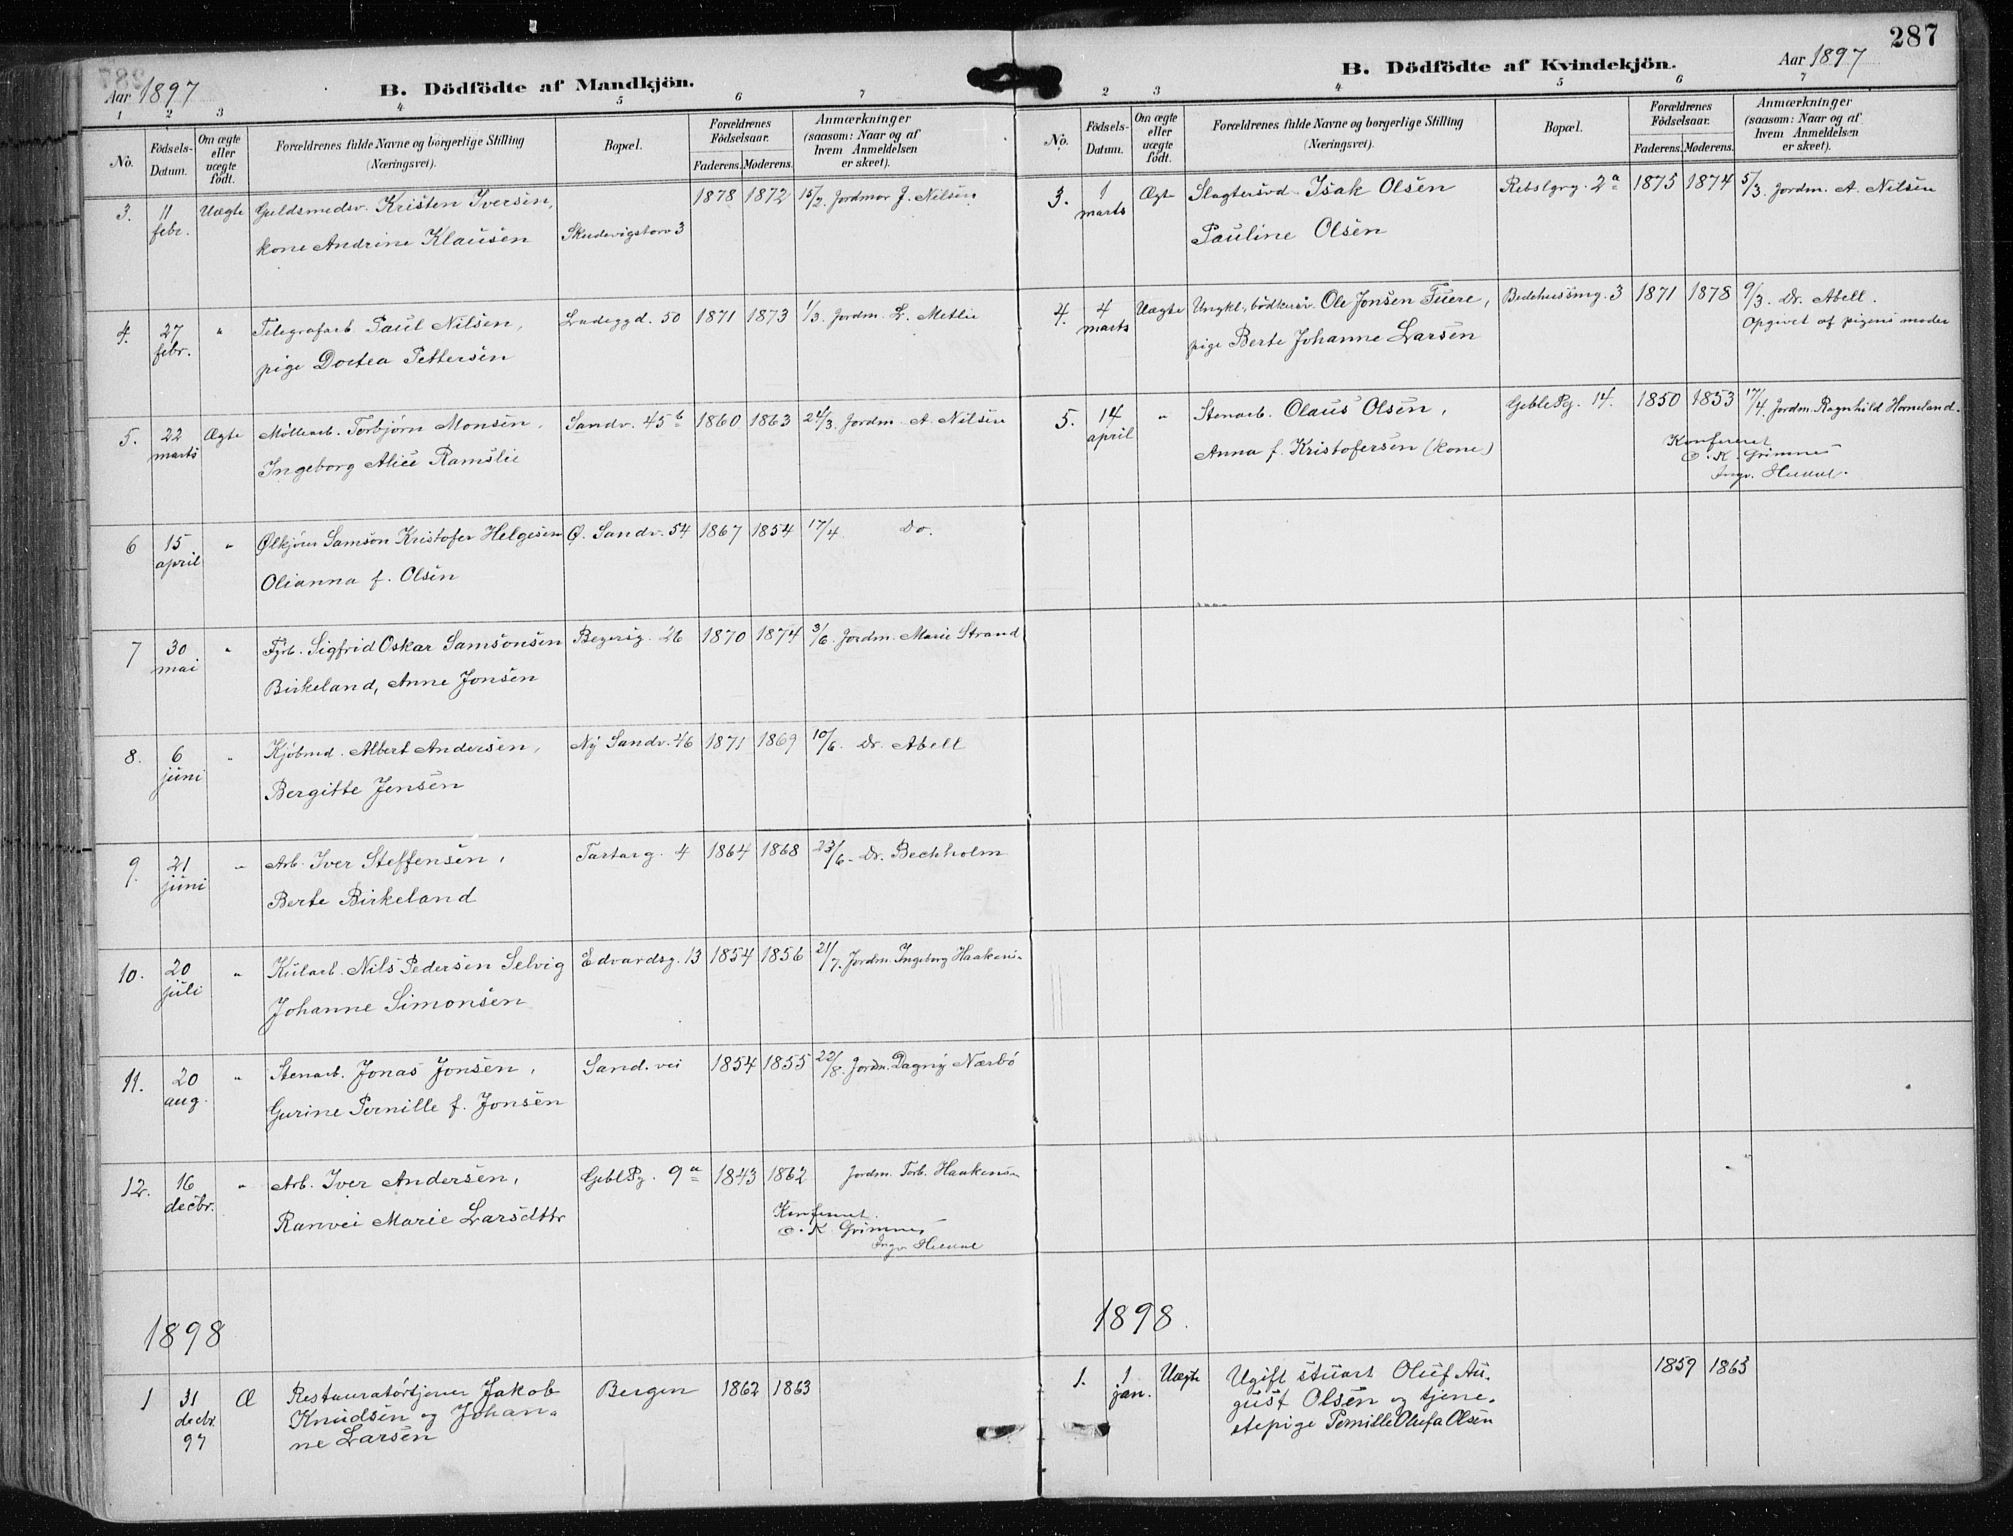 Aar 1897
B. Dödfödte af Mandkjön.
1 2 3 4 5 6 7
No.
Födsels-Datum.
Om ægte eller uægte født.
Forældrenes fulde Navne og borgerlige Stilling (Næringsvei).
Bopæl.
Forældrenes Födselsaar.
Faderens. Moderens.
Anmærkninger (saasom: Naar og af hvem Anmeldelsen er skeet).
3. 11 febr. Uægte Guldsmedsv. Kristen Iversen, Skudevigstorv 3 1878 1872 15/2. Jordmor J. Nilsen
kone Andrine Klausen
4. 27 febr. " Telegrafarb. Paul Nilsen, Ladeggd. 50 1871 1873 1/3. Jordm. L. Metlie
pige Dortea Pettersen
5. 22 marts Ægte Møllearb. Torbjørn Monsen, Sandv. 45 b 1860 1863 24/3. Jordm. A. Nilsen
Ingeborg Alice Ramslie
6 15 april " Ølkjører Samson Kristofer Helgesen Ø. Sandv. 54 1867 1854 17/4 Do.
Olianna f. Olsen
7 30 mai " Fyrb. Sigfrid Oskar Samsonsen Beyersg. 26 1870 1874 3/6. Jordm. Marie Strand
Birkeland, Anne Jonsen
8. 6 juni " Kjøbmd. Albert Andersen, Ny Sandv. 46 1871 1869 10/6. Dr. Abell
Bergitte Jensen
9. 21 juni " Arb. Iver Steffensen, Tartarg. 4 1864 1868 23/6. Dr. Bechholm
Berte Birkeland
10. 20 juli " Kularb. Nils Pedersen Selvig Edvardsg. 13 1854 1856 21/7. Jordm. Ingeborg Haakens.
Johanne Simonsen
11. 20 aug. " Stenarb. Jonas Jonsen, Sand. vei 1854 1855 22/8. Jordm. Dagny Nærbö
Gurine Pernille f. Jonsen
12. 16 decbr. " Arb. Iver Andersen, Geble Pg. 9 a 1843 1862 Jordm. Torb. Haakens
Ranvei Marie Larsdttr
Konferert.
O. K. Grimnes
Ingv.
1898
1 31 decbr. 97 Æ Restauratørtjener Jakob Bergen 1862 1863
Knudsen og Johan-
ne Larsen
287
B. Dödfödte af Kvindekjön.
Aar 1897
2 3 4 5 6 7
No.
Födsels-Datum.
Om ægte eller uægte födt.
Forældrenes fulde Navne og borgerlige Stilling (Næringsvei).
Bopæl.
Forældrenes Födselsaar.
Faderens. Moderens.
Anmærkninger (saasom: Naar og af hvem Anmeldelsen er skeet).
3. 1 marts Ægte Slagtersvd. Isak Olsen Rebslgrg. 2 a 1875 1874 5/3. Jordm. A. Nilsen
Pauline Olsen
4. 4 marts Uægte Ungkl., bödkersv. Ole Jonsen Tuere, Bedehussmg. 3 1871 1878 9/3. Dr. Abell.
pige Berte Johanne Larsen Opgivet af pigens moder
5. 14 april " Stenarb. Olaus Olsen, Geble Pg. 14. 1850 1853 17/4. Jordm. Ragnhild Horneland.
Anna f. Kristofersen (kone)
Konfereret
O. K. Grimnes
Ingv.
1898.
1. 1 jan. Uægte Ugift stuart Oluf Au- 1859 1863
gust Olsen og tjene-
stepige Pernille Olufa Olsen